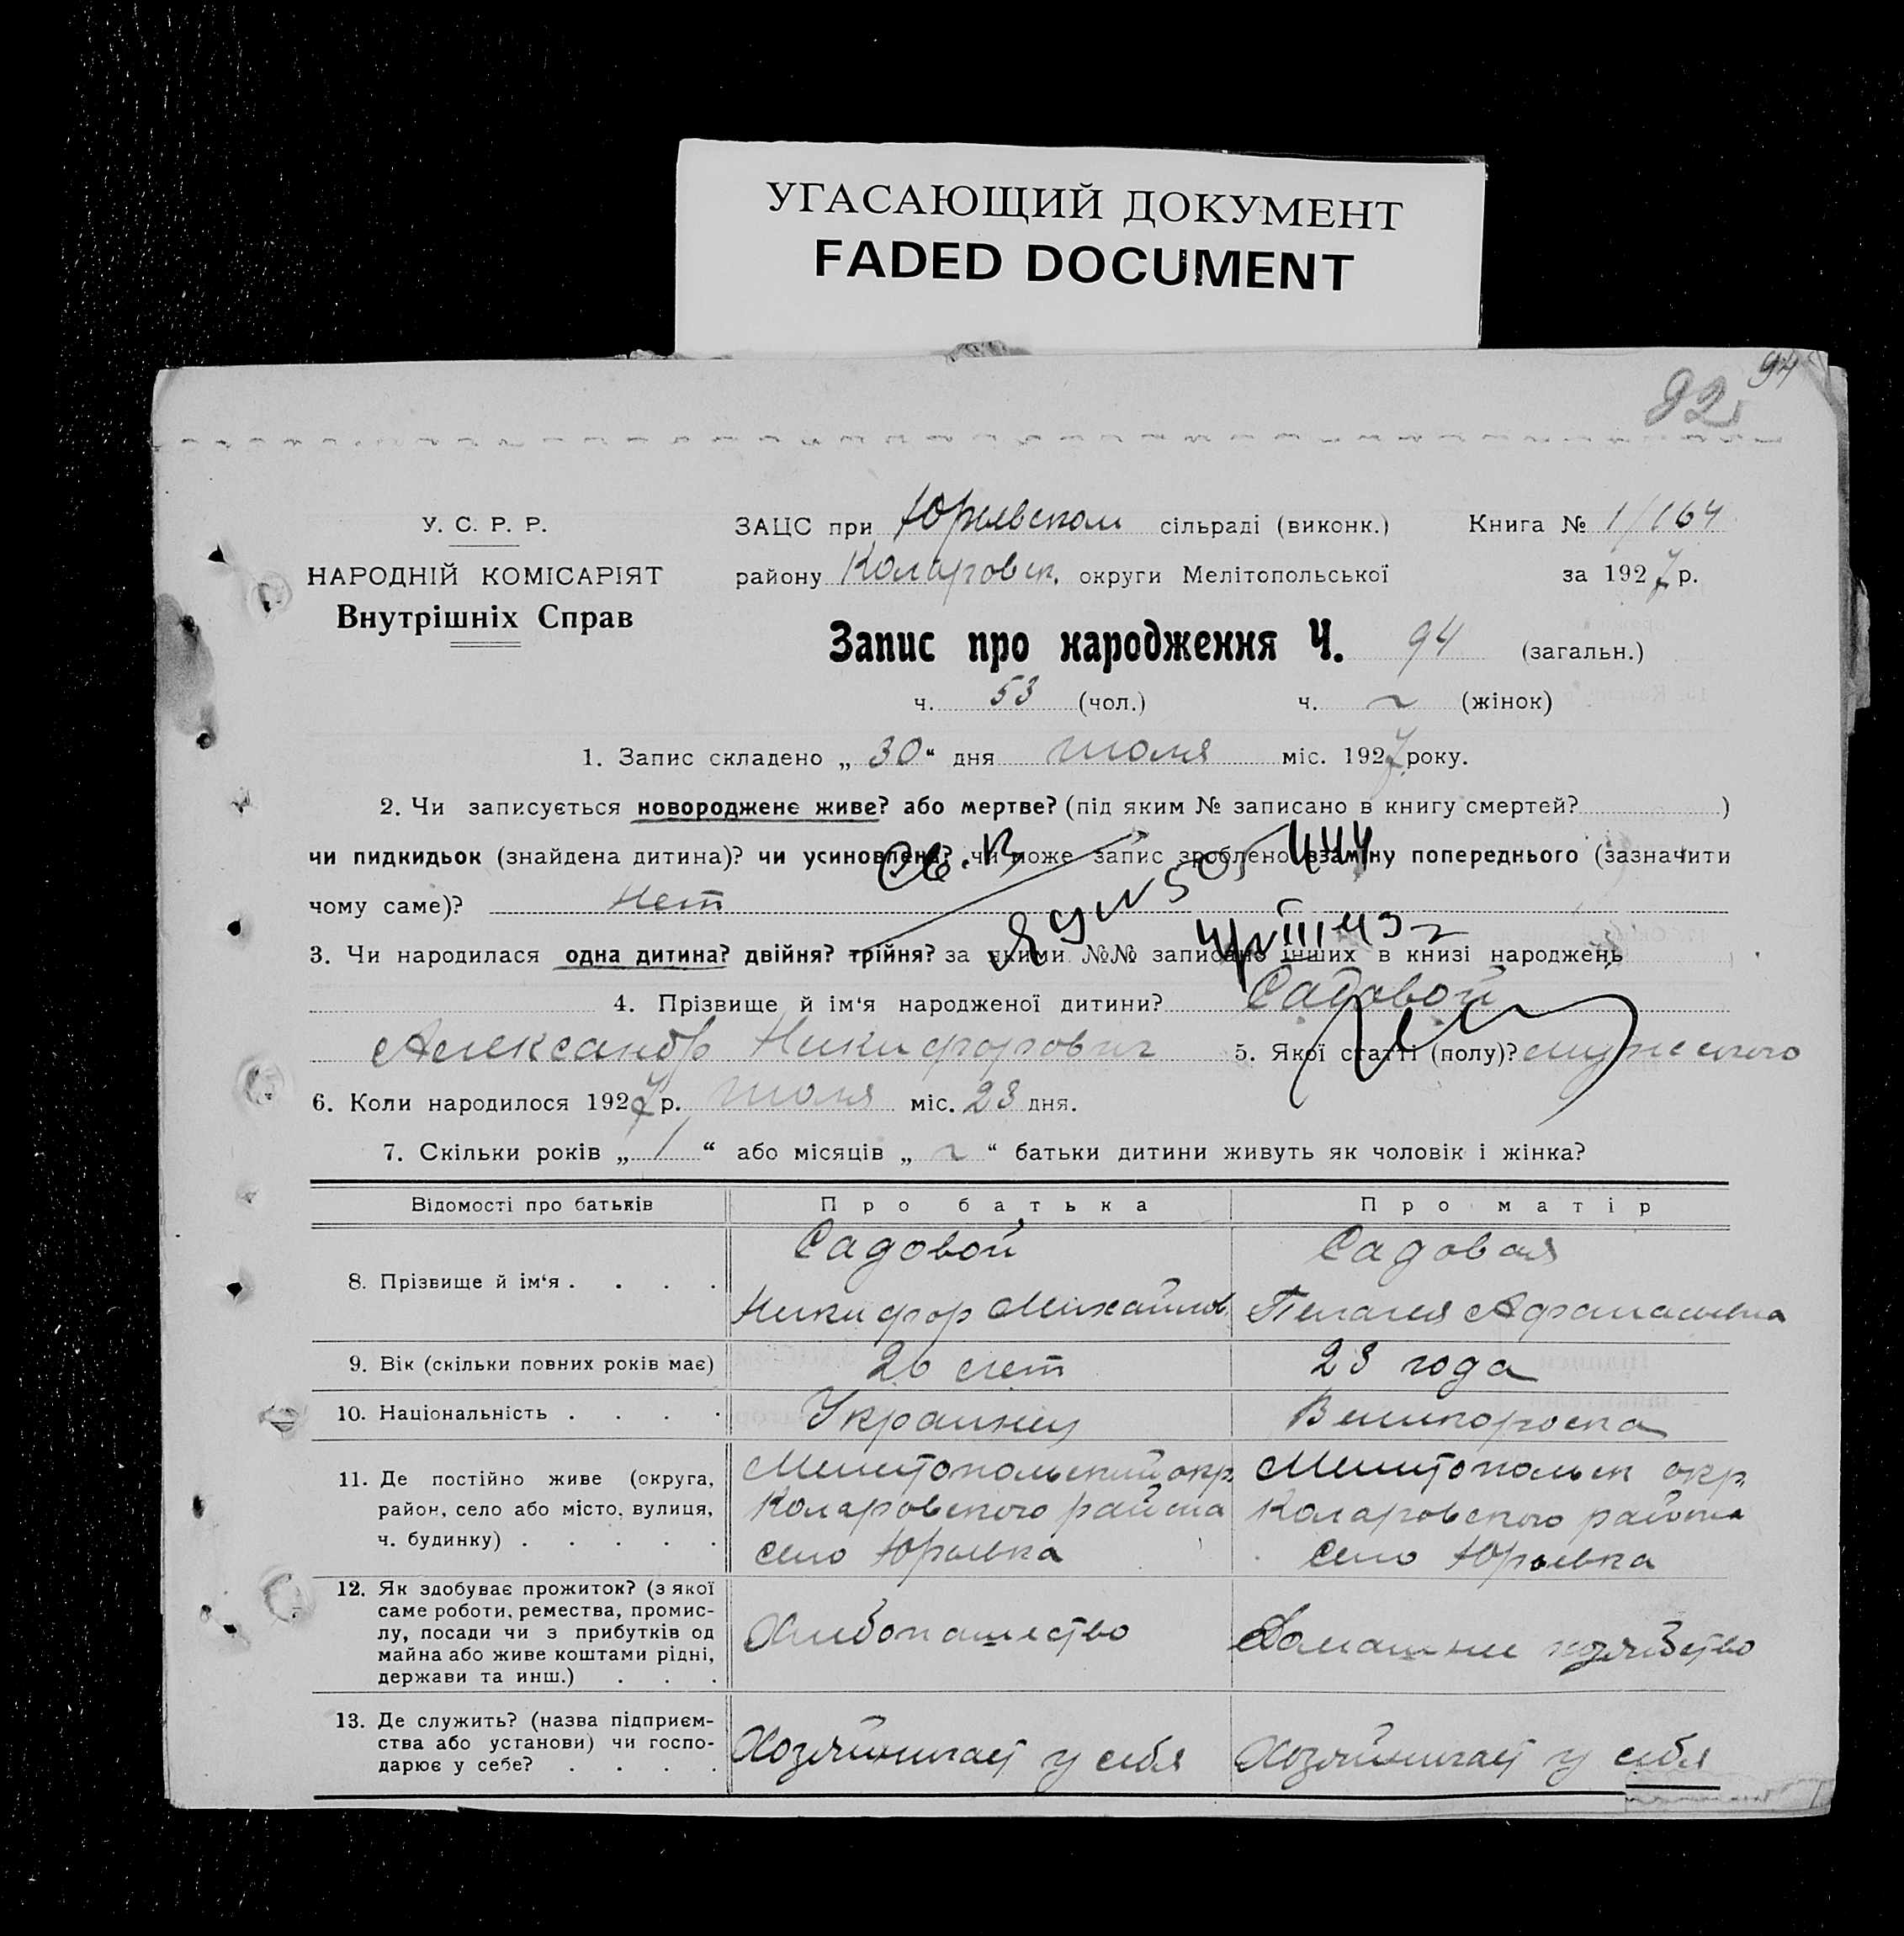 УГАСАЮЩИЙ ДОКУМЕНТ
FADED DOCUMENT
94
92
У. С. Р. Р.
НАРОДНІЙ КОМІСАРІЯТ
Внутрішніх Справ
ЗАЦС при Юрьевском сільраді (виконк.) Книга № 1/164
району Коларовск. округи Мелітопольської за 1927 р.
Запис про народження Ч. 94 (загальн.)
ч. 53 (чол.) ч. ~ (жінок)
1. Запис складено „ 30 “ дня июля міс. 1927 року.
2. Чи записується новороджене живе? або мертве? (під яким № записано в книгу смертей? )
чи пидкидьок (знайдена дитина)? чи усиновлена? чи може запис зроблено взаміну попереднього (зазначити
чому саме)? нет
3. Чи народилася одна дитина? двійня? трійня? за якими №№ записано інших в книзі народжень
4. Прізвище й ім‘я народженої дитини? Садовой
Александр Никифорович 5. Якої статті (полу)? мужского
6. Коли народилося 1927 р. июля міс. 23 дня.
7. Скільки років „ 1 “ або місяців „ ~ “ батьки дитини живуть як чоловік і жінка?
Відомості про батьків Про батька Про матір
8. Прізвище й ім‘я . . . . Садовой Никифор Михайлов Садовая Пелагея Афанасьевна
9. Вік (скільки повних років має) 26 лет 23 года
10. Національність . . . . Украинец Великороска
11. Де постійно живе (округа, Мелитопольский окр. Мелитопольск окр.
район, село або місто, вулиця, Коларовского района Коларовского района
ч. будинку) . . . . . село Юрьевка село Юрьевка
12. Як здобуває прожиток? (з якої
саме роботи, ремества, промис-
лу, посади чи з прибутків од Хлебопашество Домашнее хозяйство
майна або живе коштами рідні,
держави та инш.) . . .
13. Де служить? (назва підприєм-
ства або установи) чи госпо- Хозяйничает у себя Хозяйничает у себя
дарює у себе? . . . .